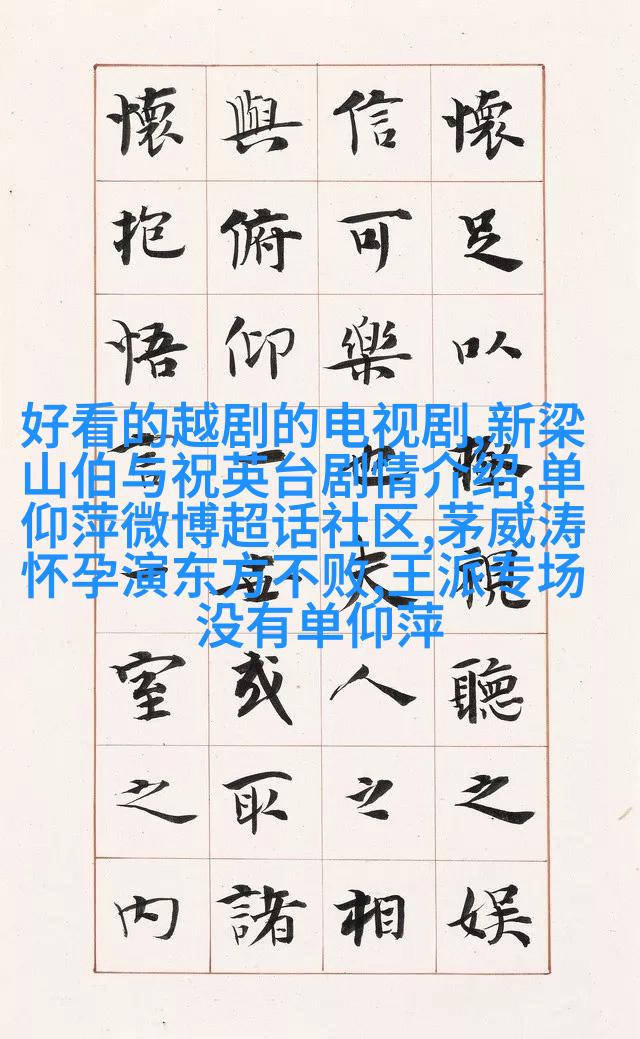 懷足以極視聽之娛
信可樂也夫人之相
與俯仰一世或取諸
懷抱悟言一室之内
好看的越剧的电视剧,新梁
山伯与祝英台剧情介绍,单
仰萍微博超话社区,茅威涛
怀孕演东方不败,王派专场
没有单仰萍